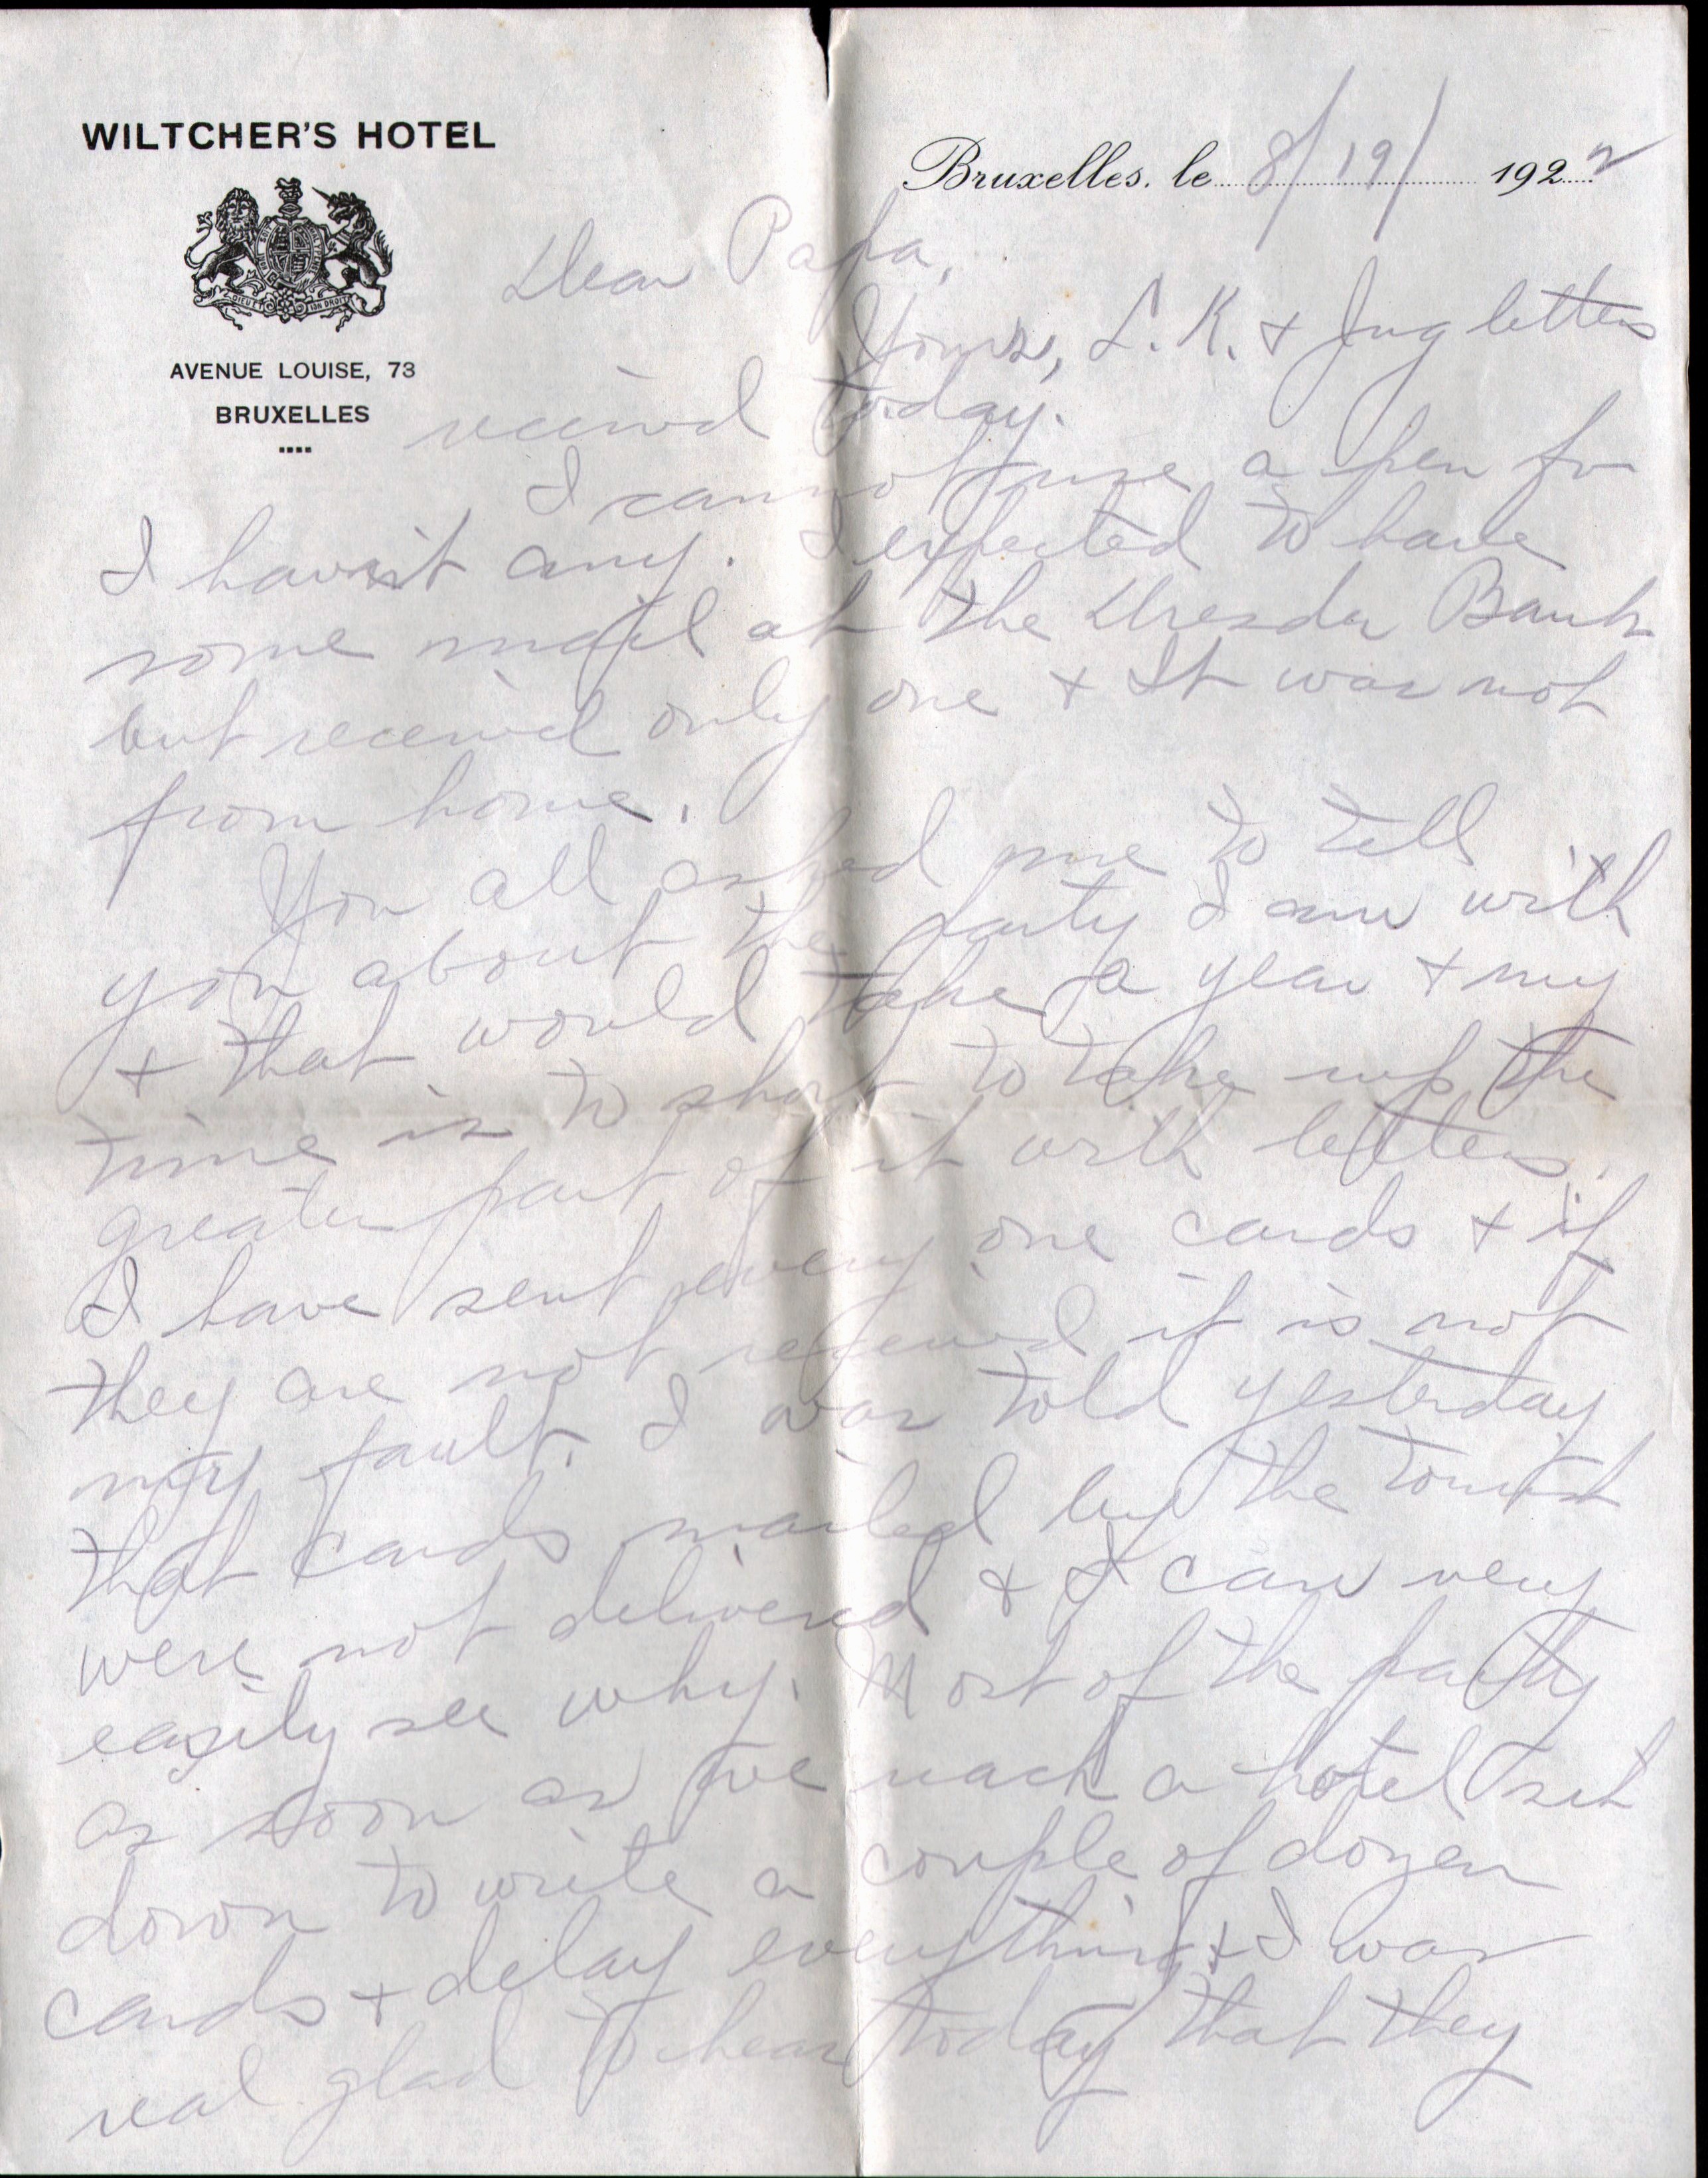 WILTCHER'S HOTEL
DIEU ET MON DROIT
AVENUE LOUISE, 73
BRUXELLES
Bruxelles, le 8/19/ 1922
Dear Papa,
Yours, L. K. + Jug letters
received today.
I cannot use a pen for
I havn't any. I expected to have
some mail at the Dresder Bank
but received only one + It was not
from home.
You all asked me to tell
you about the party I am with
+ that would take a year + my
time is to short to take up the
greater part of it with letters.
I have sent every one cards + if
they are not received it is not
my fault. I was told yesterday
that cards mailed by the tourist
were not delivered + I can very
easily see why. Most of the party
as soon as we reach a hotel set
down to write a couple of dozen
cards + delay everything + I was
real glad to hear today that they